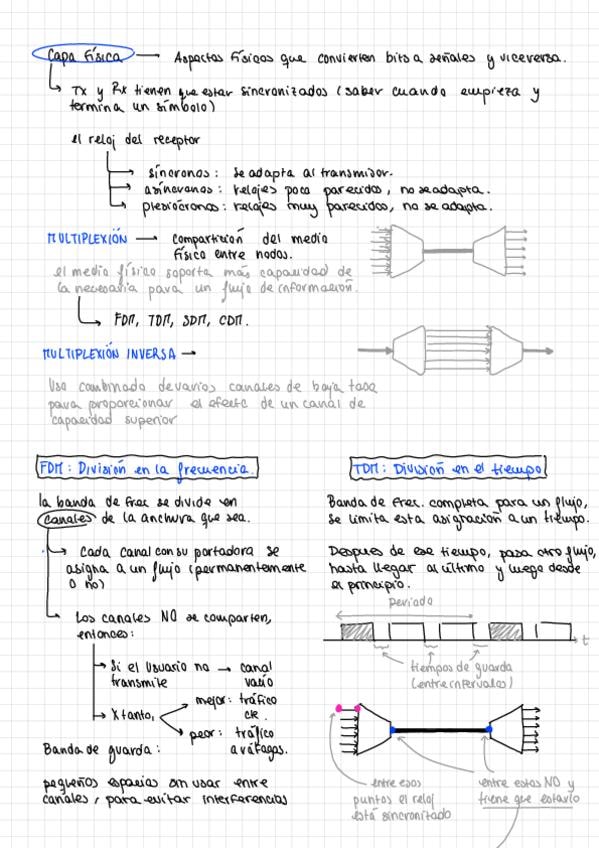 Capa física → Aspectos físicos que convierten bits a señales y viceversa.
Tx y Rx tienen que estar sincronizados (saber cuando empieza y
termina un símbolo)
el reloj del receptor
síncronos: se adapta al transmisor.
asíncronos: relojes poco parecidos, no se adapta.
plesiócronos: relojes muy parecidos, no se adapta.
MULTIPLEXIÓN → compartición del medio
físico entre nodos.
el medio físico soporta más capacidad de
la necesaria para un flujo de información.
FDM, TDM, SDM, CDM.
MULTIPLEXIÓN INVERSA →
Uso combinado de varios canales de baja tasa
para proporcionar el efecto de un canal de
capacidad superior
FDM: División en la frecuencia.
la banda de frec se divide en
canales de la anchura que sea.
Cada canal con su portadora se
asigna a un flujo (permanentemente
o no)
Los canales NO se comparten,
entonces:
Si el usuario no → canal
transmite vacío
X tanto, mejor: tráfico
cte.
peor: tráfico
a ráfagas.
Banda de guarda:
pequeños espacios sin usar entre
canales, para evitar interferencias
TDM: División en el tiempo
Banda de frec. completa para un flujo,
se limita esta asignación a un tiempo.
Despues de ese tiempo, pasa otro flujo,
hasta llegar al último y luego desde
el principio.
periodo
t
tiempos de guarda
(entre intervalos)
entre esos
puntos el reloj
está sincronitado
entre estos NO y
tiene que estarlo